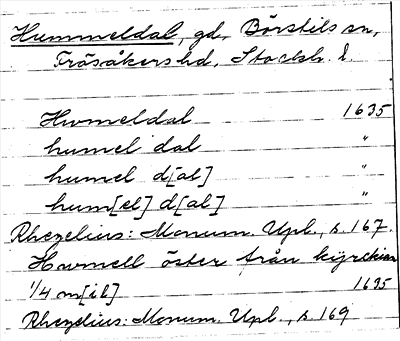 Hummeldal, gd, Börstils sn,
Frösåkers hd, Stockh. l.
Humeldal 1635
humel dal "
humel d[al] "
hum[el] d[al] "
Rhezelius: Monum. Upl., s. 167.
Hwmell öster från kyrckian
1/4 m[il] 1635
Rhezelius: Monum. Upl., s. 169